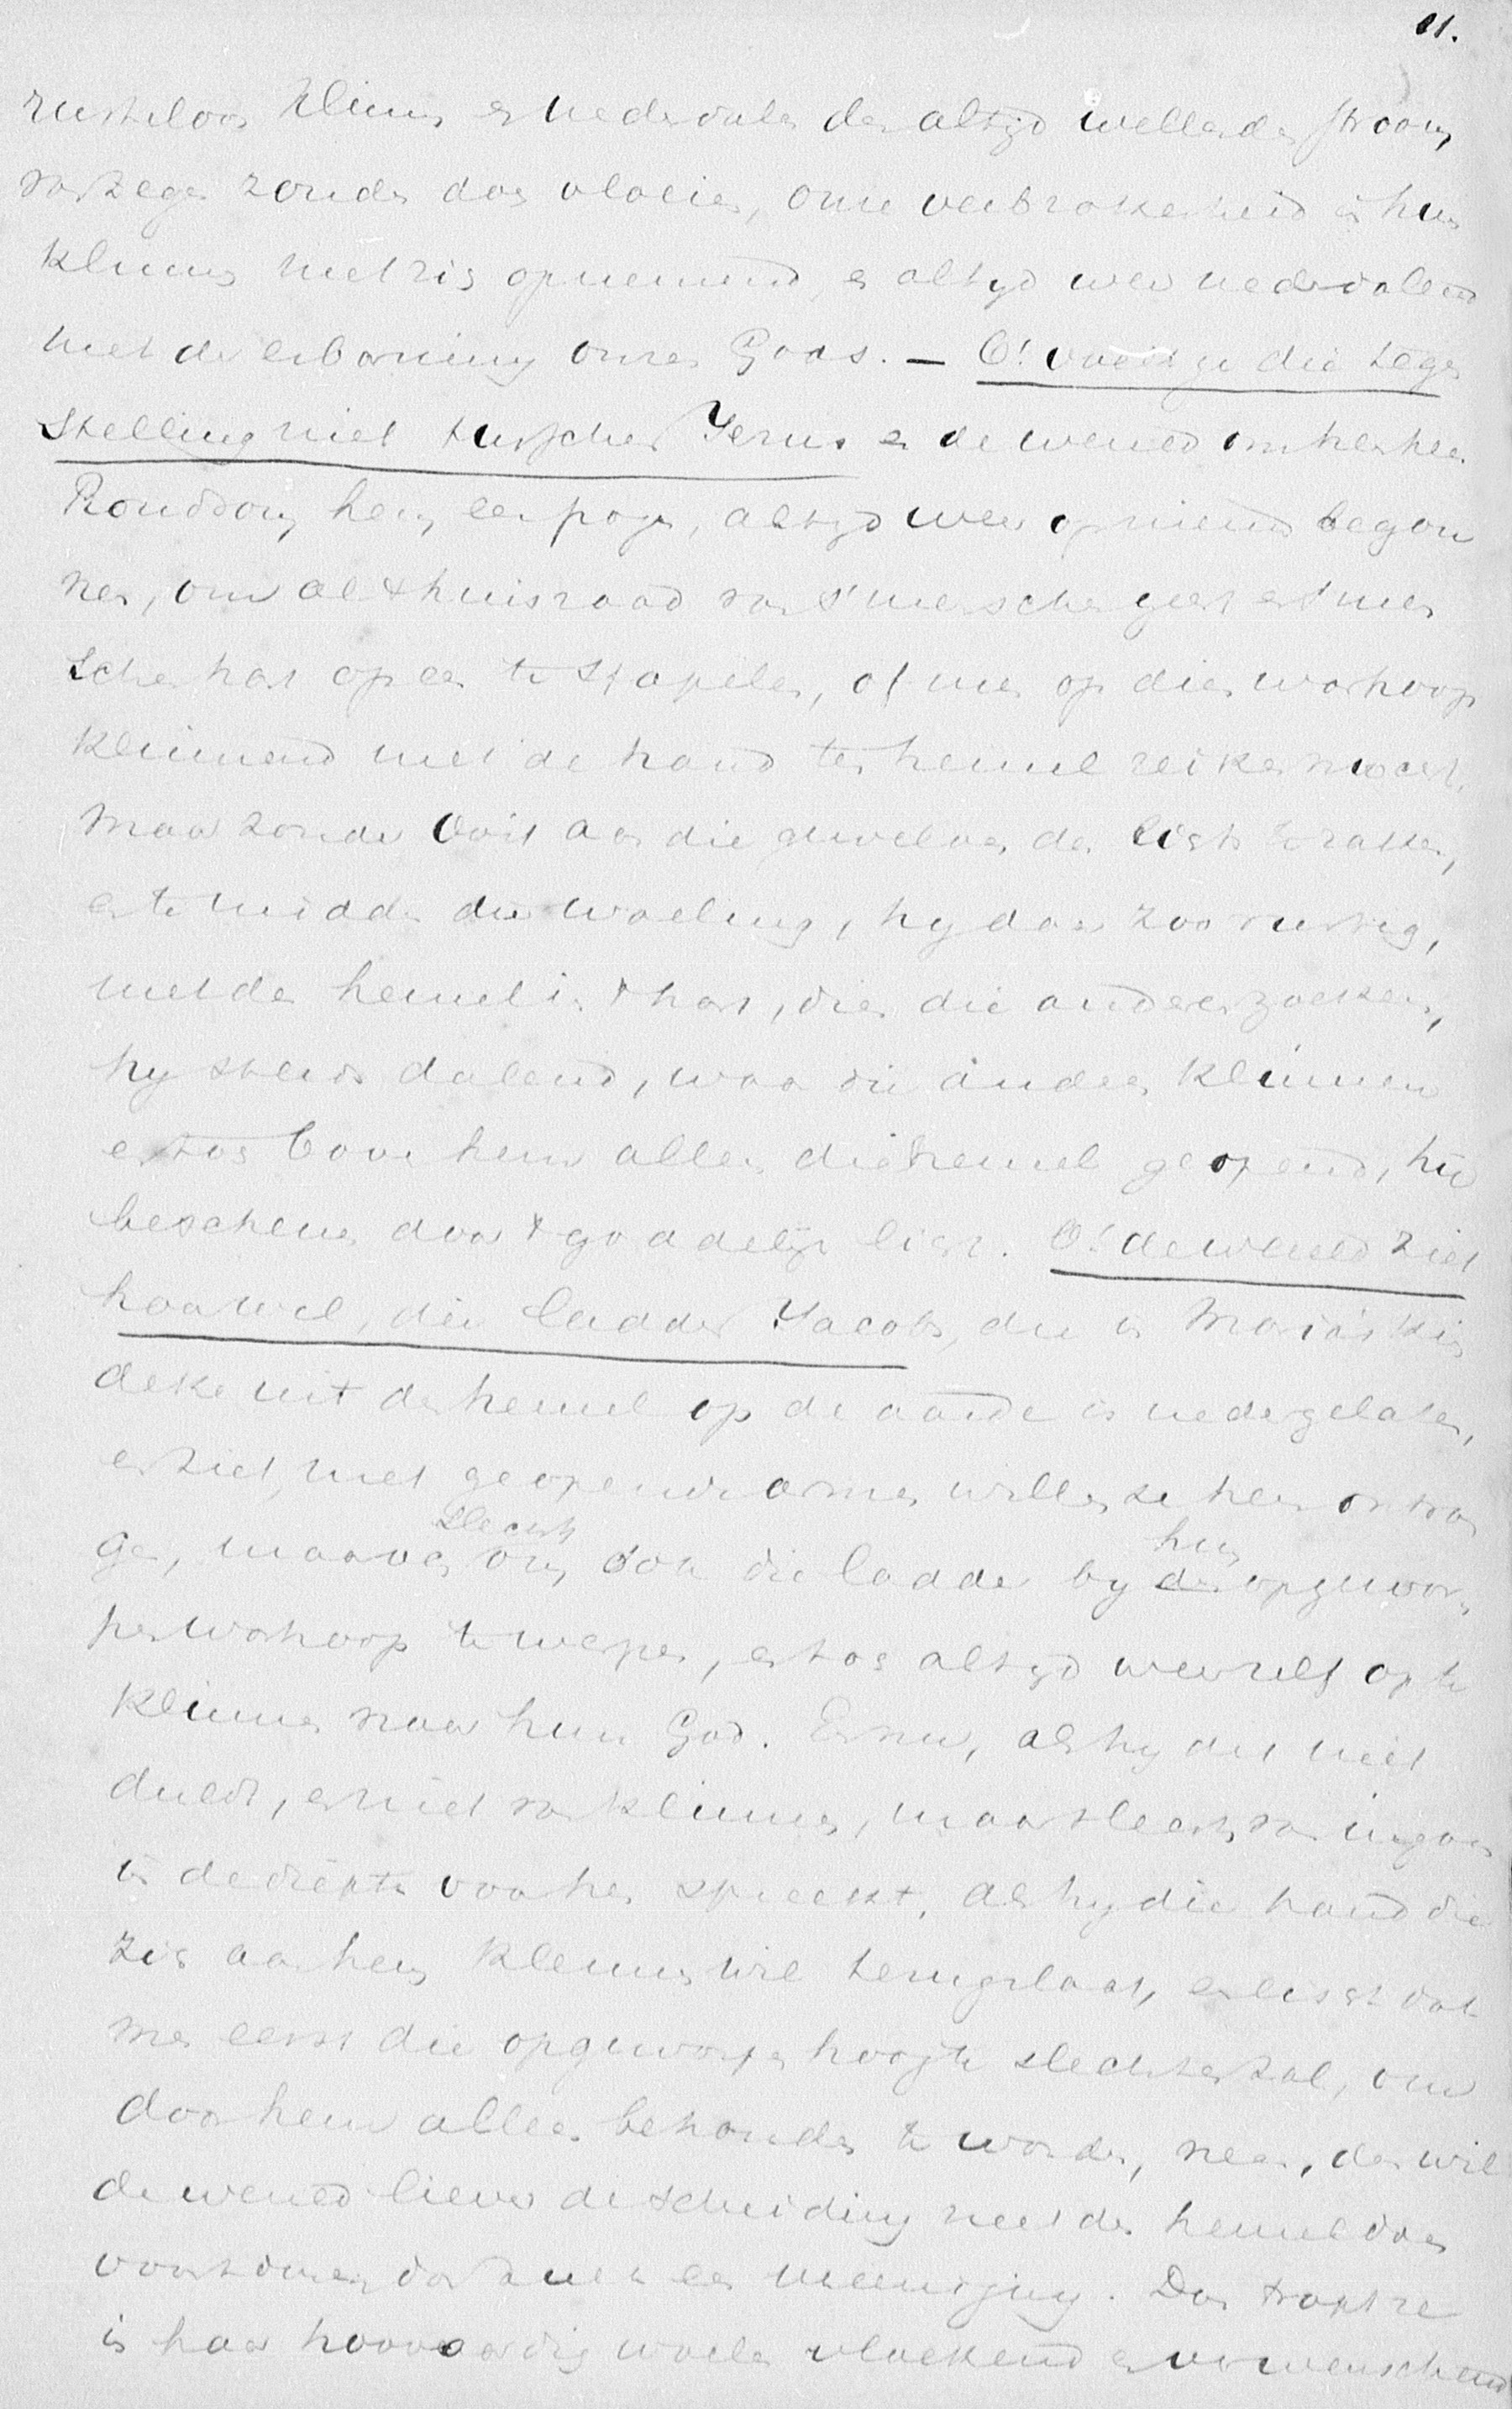 11.
rusteloos klimmen en nederdalen den altijd wellenden stroom
van zegen zonder dat vloeien, onze verbrokenheid in hun
klimmen met zich opnemend, en altijd weer nederdalend
met de erbarming onzes Gods. — O! voelt ge die tegen
stelling niet tusschen Jezus en de wereld om hem heen
Rondom hem een pogen, altyd weer op nieuw begon
nen, om al 't huisraad van s'menschen geest en s'men
schen hart op een te stapelen, of men op dien
klimmend met de hand ten hemel reiken mocht,
maar zonder ooit aan die gewelven des lichts te raken,
en te midden dier woeling, hy daar zoo rustig,
met den hemel in 't hart, dien die anderen zoeken,
hy steeds dalend, waar die anderen klimmen
en toch boven hem alleen die hemel geopend, hy
beschenen door 't goddelijk licht. O! de wereld ziet
haar wel, die ladder Jacobs, die in Maria's kin
deke uit den hemel op de aarde is nedergelaten,
en ziet, met geopende armen willen ze hem ontvan
gen, maar om slechts ook die ladder by den hun opgewor
pen te werpen, en toch altyd weer zelf op te
klimmen naar hun God. En nu, als hy dit niet
duldt, en niet van klimmen, maar slechts van ingaan
in de diepte voor hen spreekt, als hy die hand die
zich aan hem klemmen wil terugslaat, en eischt dat
men eerst die opgeworpen hoogte slechten zal, om
door hem alleen behouden te worden, neen, dan wil
de wereld liever de scheiding met den hemel doen
voortduren dan zulk een vereeniging. Dan trapt ze
in haar hoovaardig woelen vloekend en verwenschend